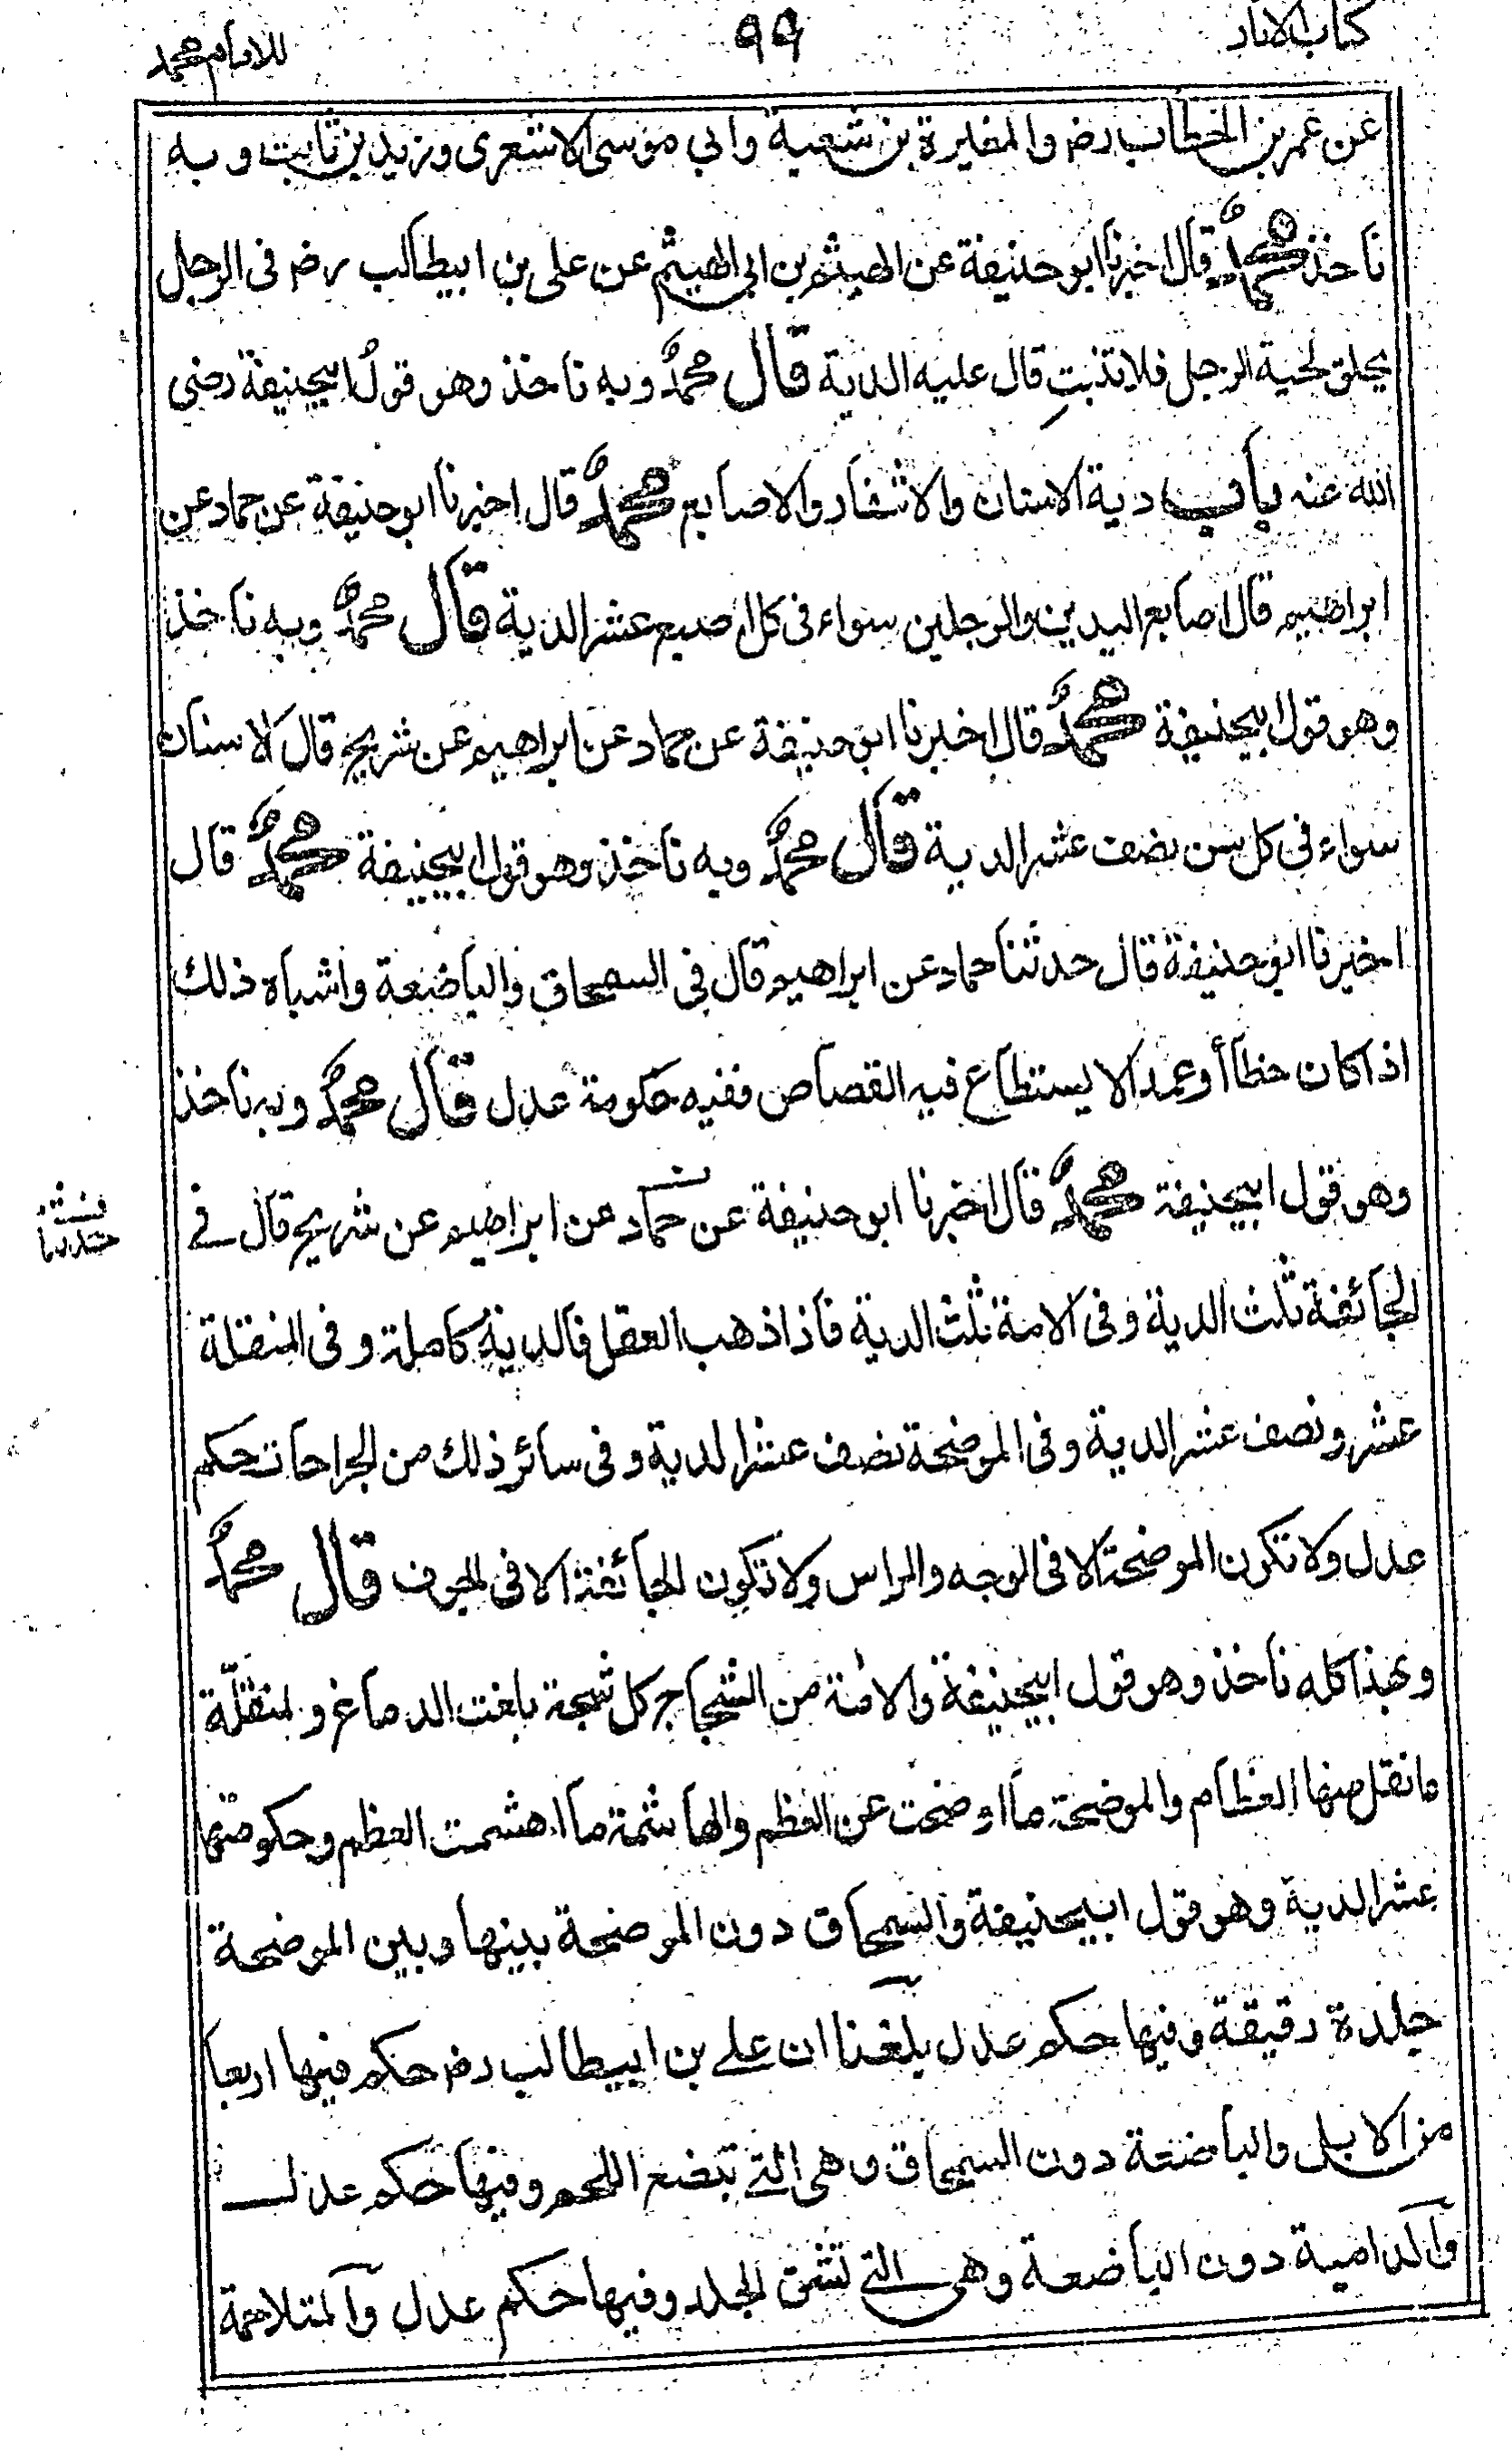 كتاب الآثار
٩٩
للامام محمد
عن عمر بن الخطاب رض والمغيرة بن شعبة وابي موسى الاشعرى وزيد بن ثابت وبه
ناخذ محمدٌ قال اخبرنا ابو حنيفة عن الهيثم بن ابى الهيثم عن على بن ابيطالب رض فى الرجل
يحلق لحية الرجل فلا تنبت قال عليه الدية قال محمدٌ وبه ناخذ وهو قولُ ابيحنيفة رضي
الله عنه باب دية الاسنان والاشفار والاصابع محمدٌ قال اخبرنا ابو حنيفة عن حماد عن
ابراهيم قال اصابع اليدين والرجلين سواء فى كل اصبع عشر الدية قال محمدٌ وبه ناخذ
وهو قول ابيحنيفة محمدٌ قال اخبرنا ابو حنيفة عن حماد عن ابراهيم عن شريح قال الاسنان
سواء فى كل سن نصف عشر الدية قال محمدٌ وبه ناخذ وهو قول ابيحنيفة محمدٌ قال
اخبرنا ابو حنيفة قال حدثنا حماد عن ابراهيم قال فى السمحاق والباضعة واشباه ذلك
اذا كان خطأ أو عمدا لا يستطاع فيه القصاص ففيه حكومة عدل قال محمدٌ وبه ناخذ
وهو قول ابيحنيفة محمدٌ قال اخبرنا ابو حنيفة عن حماد عن ابراهيم عن شريح قال فے
حدثنا
الجائفة ثلث الدية وفى الامة ثلث الدية فاذا ذهب العقل فالدية كاملة وفى المنقلة
عشر ونصف عشر الدية وفى الموضحة نصف عشر الدية وفى سائر ذلك من الجراحات حكم
عدل ولا تكون الموضحة الا فى الوجه والراس ولا تكون الجائفة الا فى الجوف قال محمدٌ
وبهذا كله ناخذ وهو قول ابيحنيفة والامة من الشجاج كل شجة بلغت الدماغ والمنقلة
ما نقل منها العظام والموضحة ما اوضحت عن العظم والهاشمة ما اهشمت العظم وحكومتها
عشر الدية وهو قول ابيحنيفة والسمحاق دون الموضحة بينها وبين الموضحة
جلدة رقيقة وفيها حكم عدل بلغنا ان علے بن ابيطالب رض حكم فيها اربعا
من الابل والباضعة دون السمحاق وهى التے تبضع اللحم وفيها حكم عدل
والدامية دون الباضعة وهى التے تشق الجلد وفيها حكم عدل والمتلاحمة